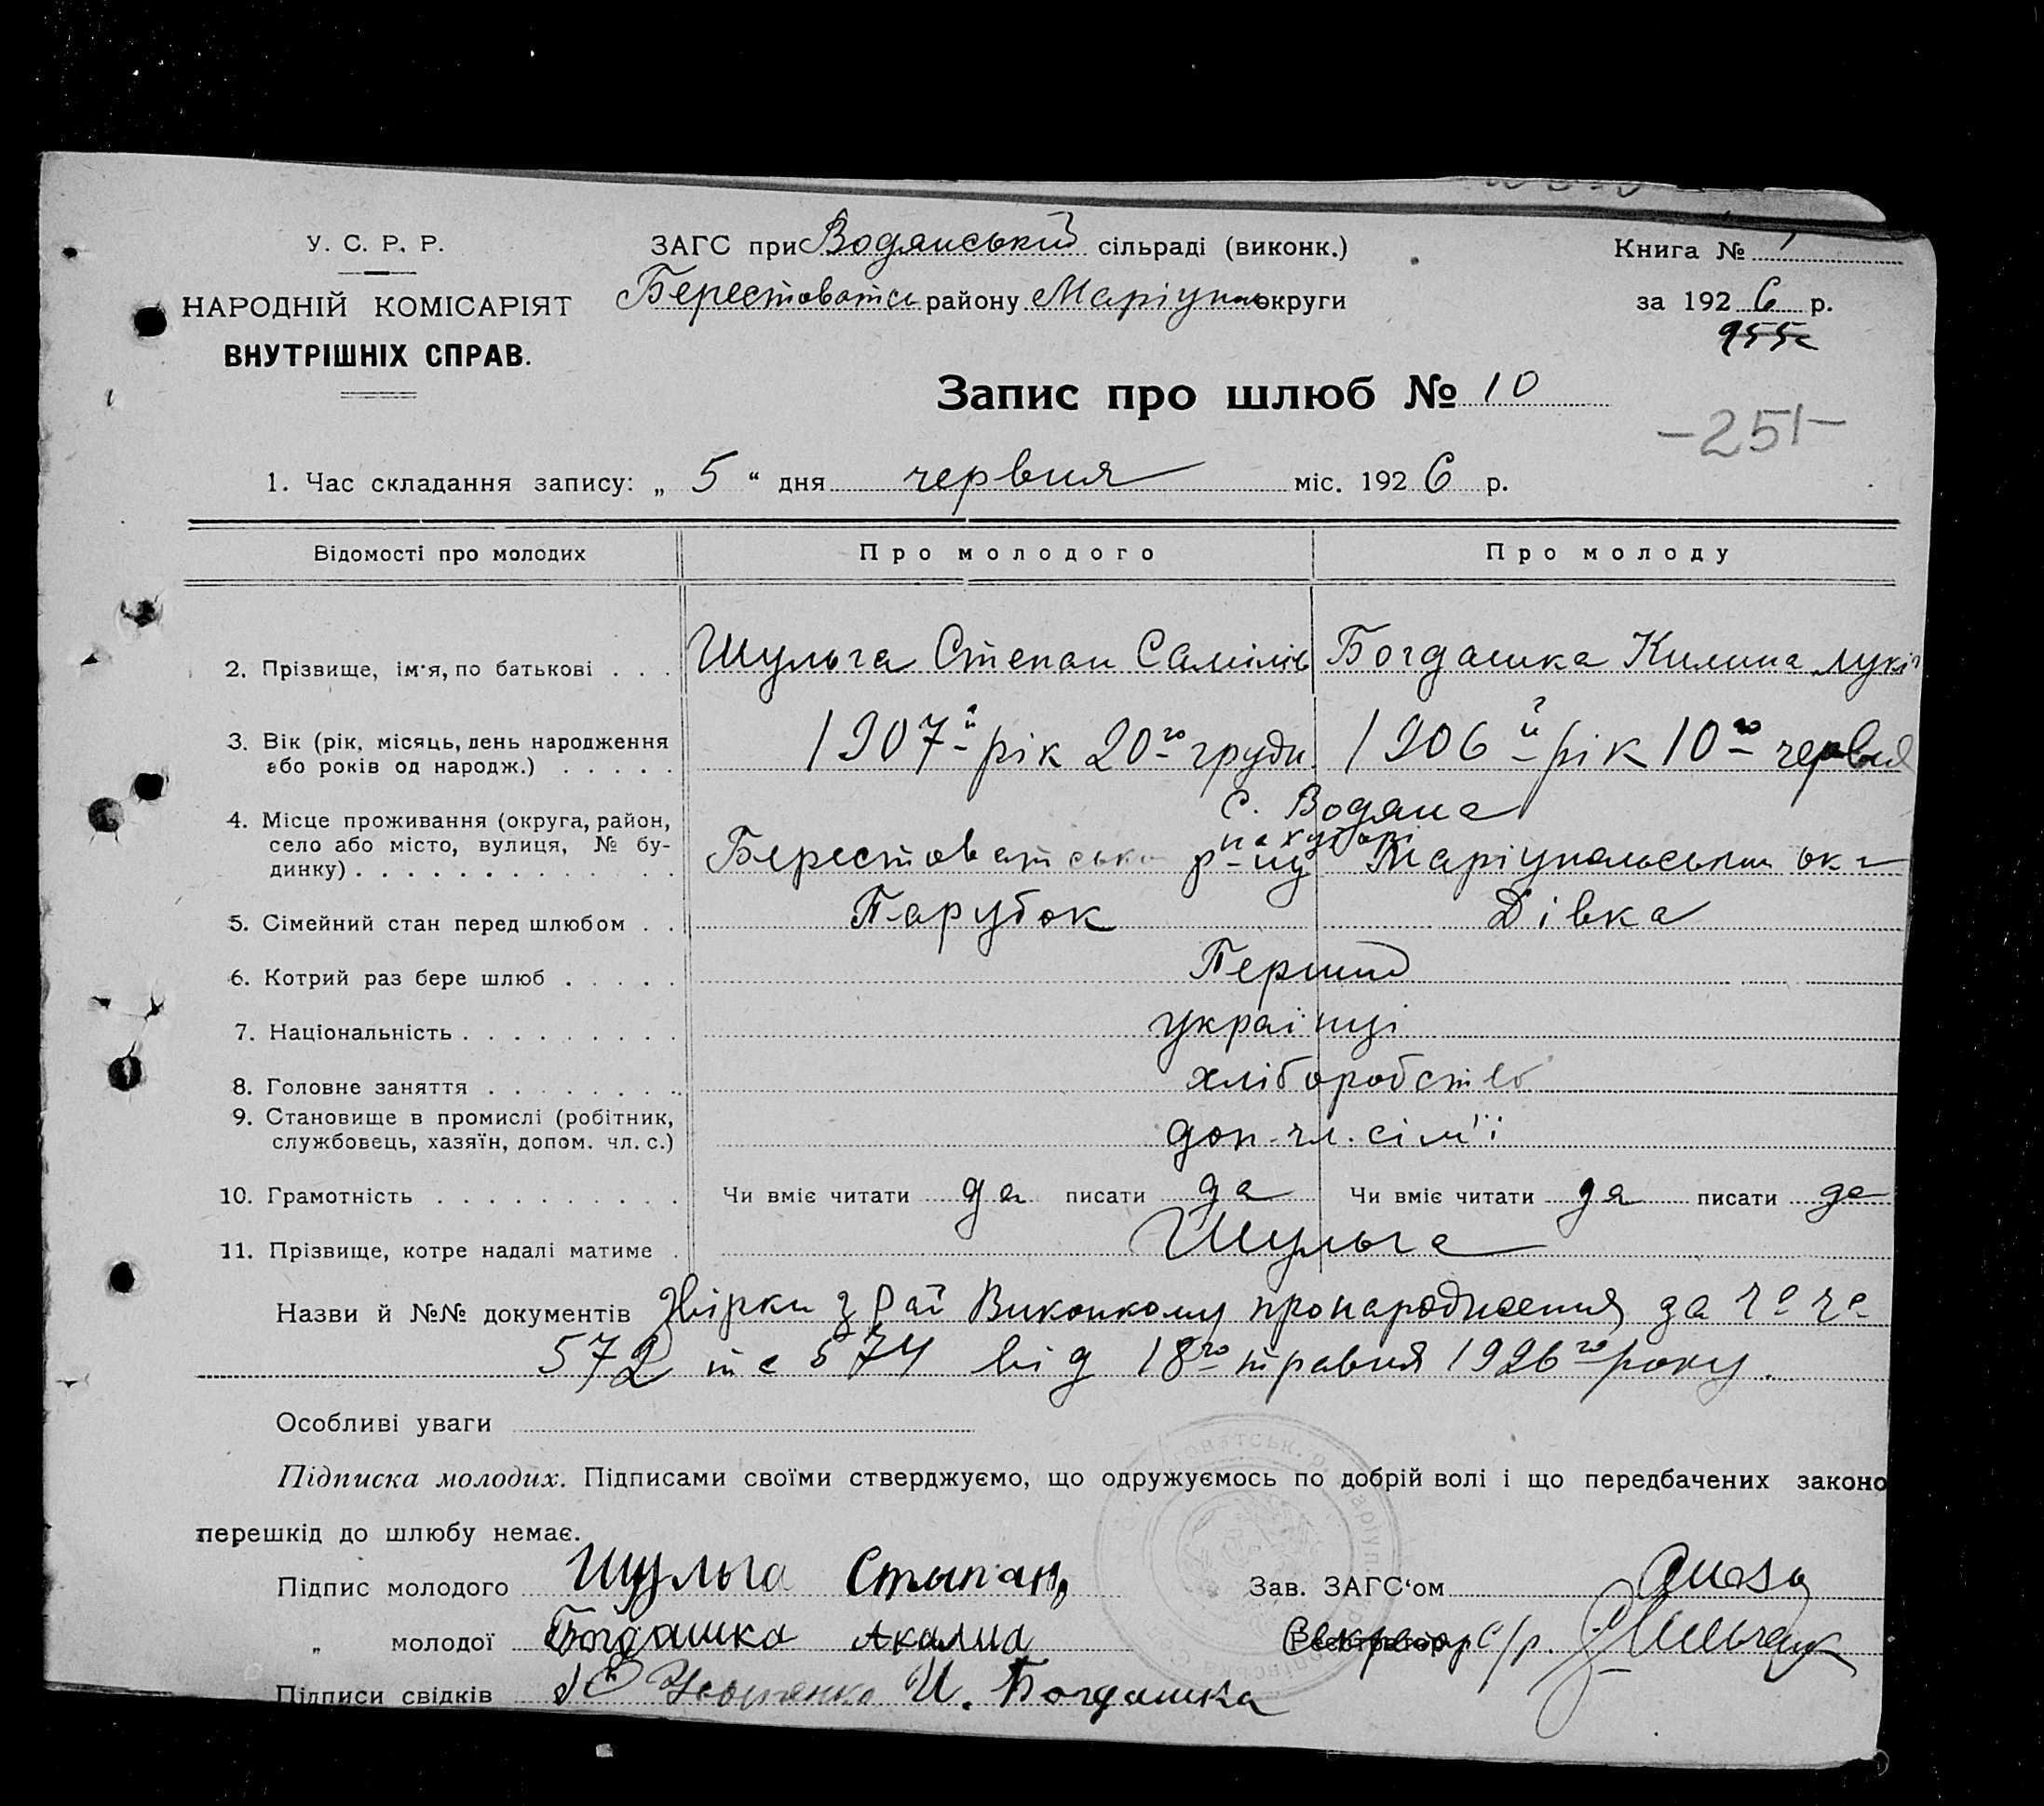 У. С. Р. Р.
НАРОДНІЙ КОМІСАРІЯТ
ВНУТРІШНІХ СПРАВ.
ЗАГС при Водянський сільраді (виконк.)
Берестоватсь району Маріуп округи
Книга № 1
за 1926 р.
Запис про шлюб № 10
-251-
1. Час складання запису: „ 5 “ дня червня міс. 1926 р.
Відомості про молодих Про молодого Про молоду
2. Прізвище, ім'я, по батькові . . . Шульга Степан Богдашка Килина Лукі
3. Вік (рік, місяць, день народження 1907й рік 20го грудн. 1906й рік 10го червня
або років од народж.) . . . . .
с. Водяна
4. Місце проживання (округа, район,
село або місто, вулиця, № бу- Берестоватсько р-ну Маріупольськ ок
динку) . . . . . . . . . . . . .
5. Сімейний стан перед шлюбом . . Парубок Дівка
6. Котрий раз бере шлюб . . . . . Перший
7. Національність . . . . . . . . . українці
8. Головне заняття . . . . . . . . хліборобств
9. Становище в промислі (робітник,
службовець, хазяїн, допом. чл. с.) доп. чл. сім'ї
10. Грамотність . . . . . . . . . . Чи вміє читати да писати да Чи вміє читати да писати да
11. Прізвище, котре надалі матиме . Шульга
Назви й №№ документів з Рай Виконкому про народження за
572 та 574 від 18го травня 1926го року.
Особливі уваги
Підписка молодих. Підписами своїми стверджуємо, що одружуємось по добрій волі і що передбачених законо
перешкід до шлюбу немає.
Підпис молодого Шульга Стыпанъ Зав. ЗАГС‘ом
„ молодої Богдашка Акалина Секретар с/р.
Підписи свідків И. Богдашка